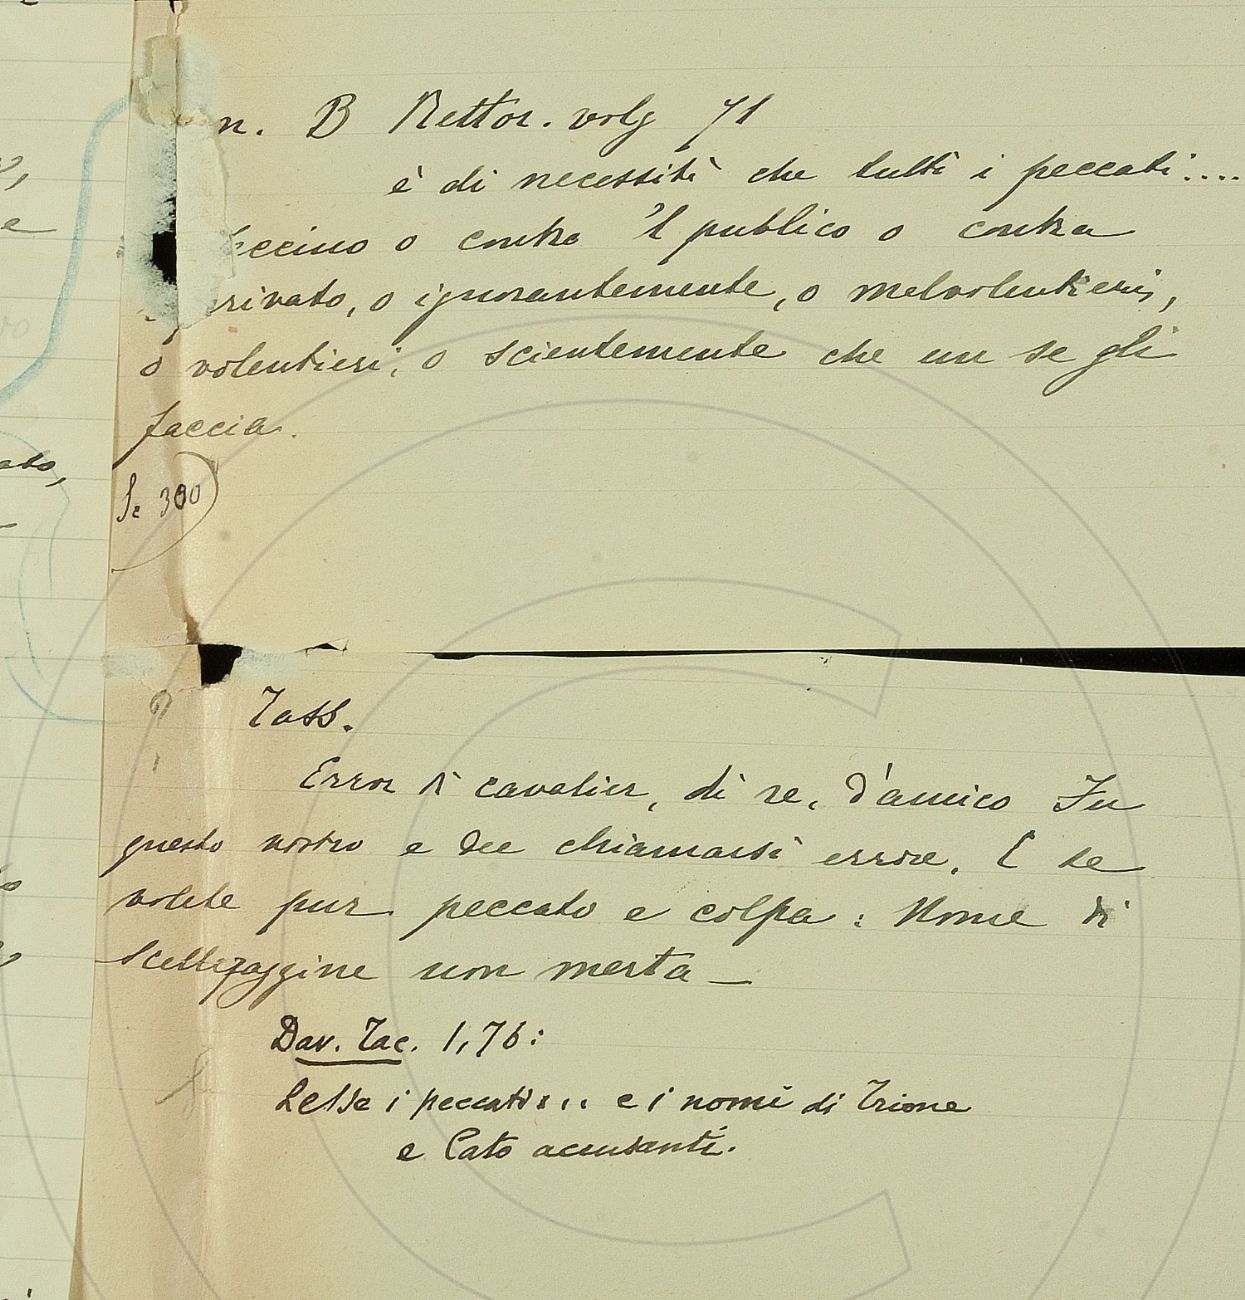 n. B Rettor. volg 71
è di necessità che tutti i peccati....
faccino o contra 'l publico o contra
privato, o ignorantemente, o malvolentieri,
o volentieri, o scientemente che un se gli
faccia.
Se 300
Tass.
Error di cavalier, di re, d'amico In
questo nostro e dee chiamarsi errore. E se
volete pur peccato e colpa: Nome di
scelleraggine non merta —
Dav. Tac. 1,76:
Lesse i peccati... e i nomi di Trione
e Cato accusanti.
ato,
e